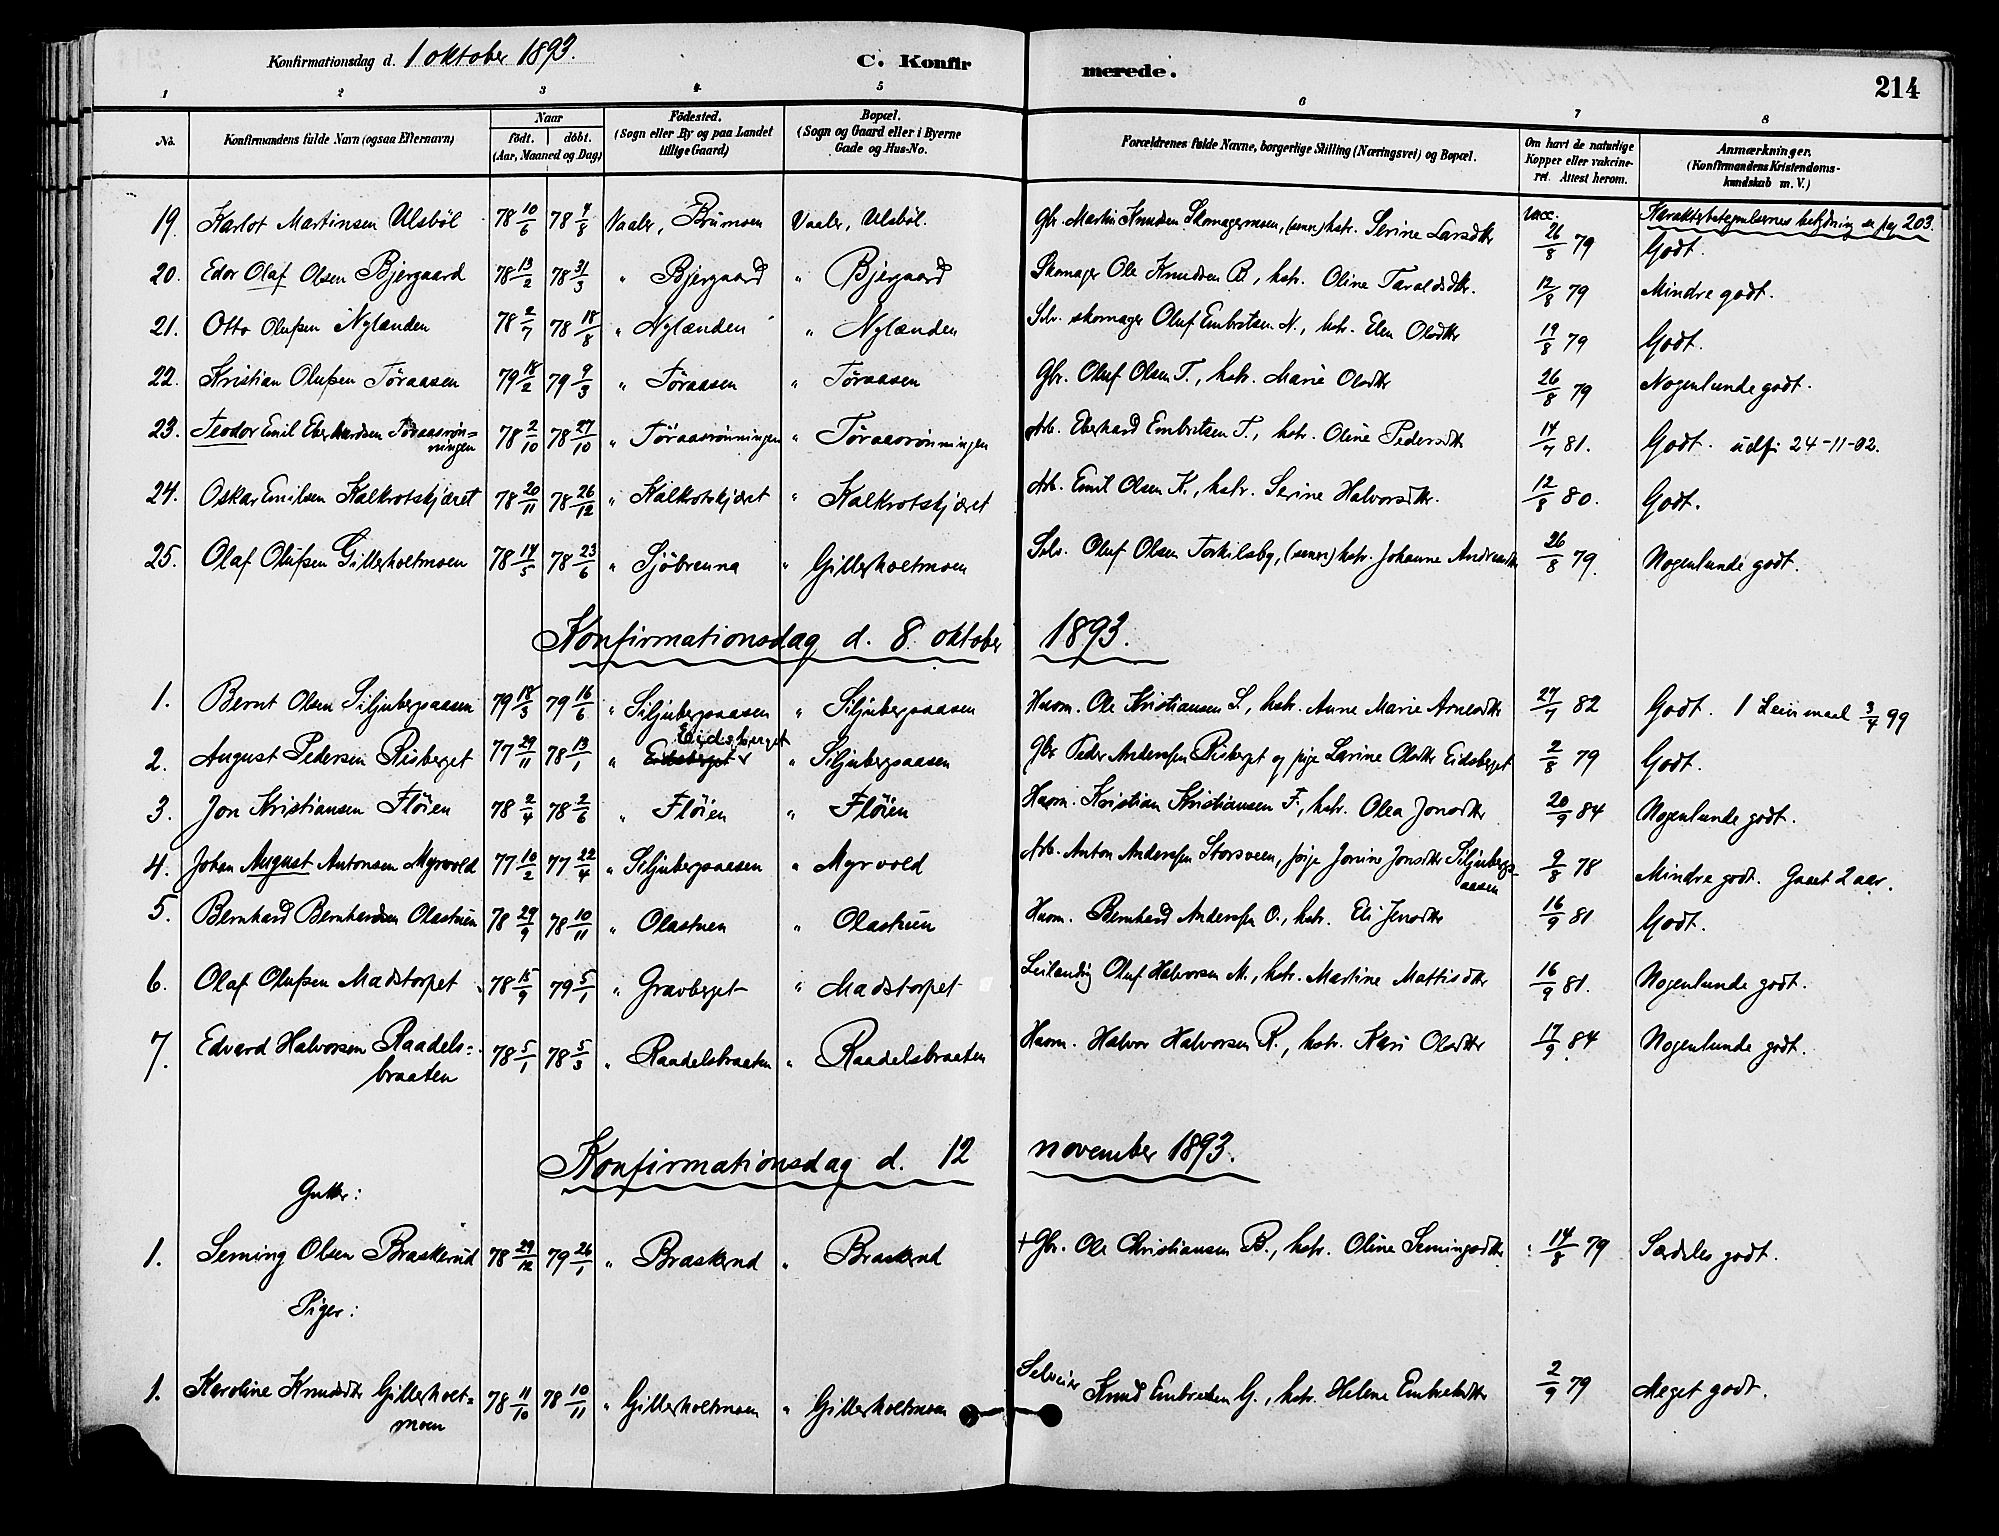 Konfirmationsdag d. 1 oktober 1893. C. Konfirmerede. 214
1 2 3 4 5 6 7 8
No. Konfirmandens fulde Navn (ogsaa Efternavn) Naar födt. döbt. (Aar, Maaned og Dag) Födested. (Sogn eller By og paa Landet tillige Gaard) Bopæl. (Sogn og Gaard eller i Byerne Gade og Hus-No. Forældrenes fulde Navne, borgerlige Stilling (Næringsvei) og Bopæl. Om havt de naturlige Kopper eller vakcineret. Attest herom. Anmærkninger. (Konfirmandens Kristendomskundskab m. V.)
Karakterbetegnelsernes betydning se pag 203.
19. Karlot Martinsen Ulsböl 78 10/6 78 4/8 Vaaler, Brumoen Vaaler, Ulsböl. Gbr. Martin Knudsen Skomagermoen, (senr.) hstr. Serine Larsdtr vacc. 26/8 79 Godt.
20. Edor Olaf Olsen Bjergaard 78 13/2 78 31/3 " Bjergaard " Bjergaard Skomager Ole Knudsen B., hstr. Oline Taraldsdtr. 12/8 79 Mindre godt.
21. Otto Olufsen Nylænden 78 2/7 78 18/8 " Nylænden " Nylænden Selv. skomager Oluf Embretsen N., hstr. Elen Olsdtr 19/8 79 Godt.
22. Kristian Olufsen Töraasen 79 18/2 79 9/3 " Töraasen " Töraasen Gbr. Oluf Olsen T., hstr. Marie Olsdtr 26/8 79 Nogenlunde godt.
23. Teodor Emil Eberhardsen Töraasrönningen 78 2/10 78 27/10 " Töraasrönningen " Töraasrönningen Arb. Eberhard Embretsen T., hstr. Oline Pedersdtr 14/7 81. Godt. udf. 24-11-02.
24. Oskar Emilsen Kalkrotskjæret 78 20/11 78 26/12 " Kalkrotskjæret " Kalkrotskjæret Arb. Emil Olsen K., hstr. Serine Halvorsdtr. 12/8 80. Godt.
25. Olaf Olufsen Gillerholtmoen 78 14/5 78 23/6 " Sjöbrenna " Gillerholtmoen Selv. Oluf Olsen Torkilsby, (senr.) hstr. Johanne Andreasdtr 26/8 79. Nogenlunde godt.
Konfirmationsdag d. 8. oktober 1893.
1. Bernt Olsen Siljubergaasen 79 18/3 79 16/6 " Siljubergaasen " Siljubergaasen Husm. Ole Kristiansen S., hstr. Anne Marie Arnesdtr 27/7 82 Godt. 1 Leiermaal 3/4 99
2. August Pedersen Risberget 77 29/11 78 13/1 " Eidsberget Eidsberget " Siljubergaasen Gbr Peder Anderssen Risberget og pige Larine Olsdtr Eidsberget 2/8 79 Godt.
3. Jon Kristiansen Flöien 78 2/4 78 2/6 " Flöien " Flöien Husm. Kristian Kristiansen F., hstr. Olea Jonsdtr 20/9 84 Nogenlunde godt.
4. Johan August Antonsen Myrvold 77 10/2 77 22/4 " Siljubergaasen " Myrvold Arb. Anton Anderssen Storsveen, pige Jonine Jonsdtr Siljubergsaasen 9/8 78 Mindre godt. Gaaet 2 aar.
5. Bernhard Bernhardsen Olastuen 78 29/9 78 10/11 " Olastuen " Olastuen Husm. Bernhard Anderssen O., hstr. Eli Jensdtr 16/9 81 Godt.
6. Olaf Olufsen Madstorpet 78 15/9 79 5/1 " Gravberget " Madstorpet Leilænding Oluf Halvorsen M., hstr. Martine Mattisdtr 16/9 81. Nogenlunde godt.
7. Edvard Halvorsen Raadelsbraaten 78 5/1 78 5/3 " Raadelsbraaten " Raadelsbraaten Husm. Halvor Halvorsen R., hstr. Kari Olsdtr 17/9 84 Nogenlunde godt.
Konfirmationsdag d. 12 november 1893.
Gutter:
1. Seming Olsen Braskerud 78 29/12 79 26/1 " Braskerud " Braskerud + Gbr. Ole Christiansen B., hstr. Oline Semingsdtr 14/8 79 Særdeles godt.
Piger:
1. Karoline Knudsdtr Gillerholtmoen 78 11/10 78 10/11 " Gillerholtmoen " Gillerholtmoen Selveier Knud Embretsen G., hstr. Helene Embretsdtr 2/9 79 Meget godt.